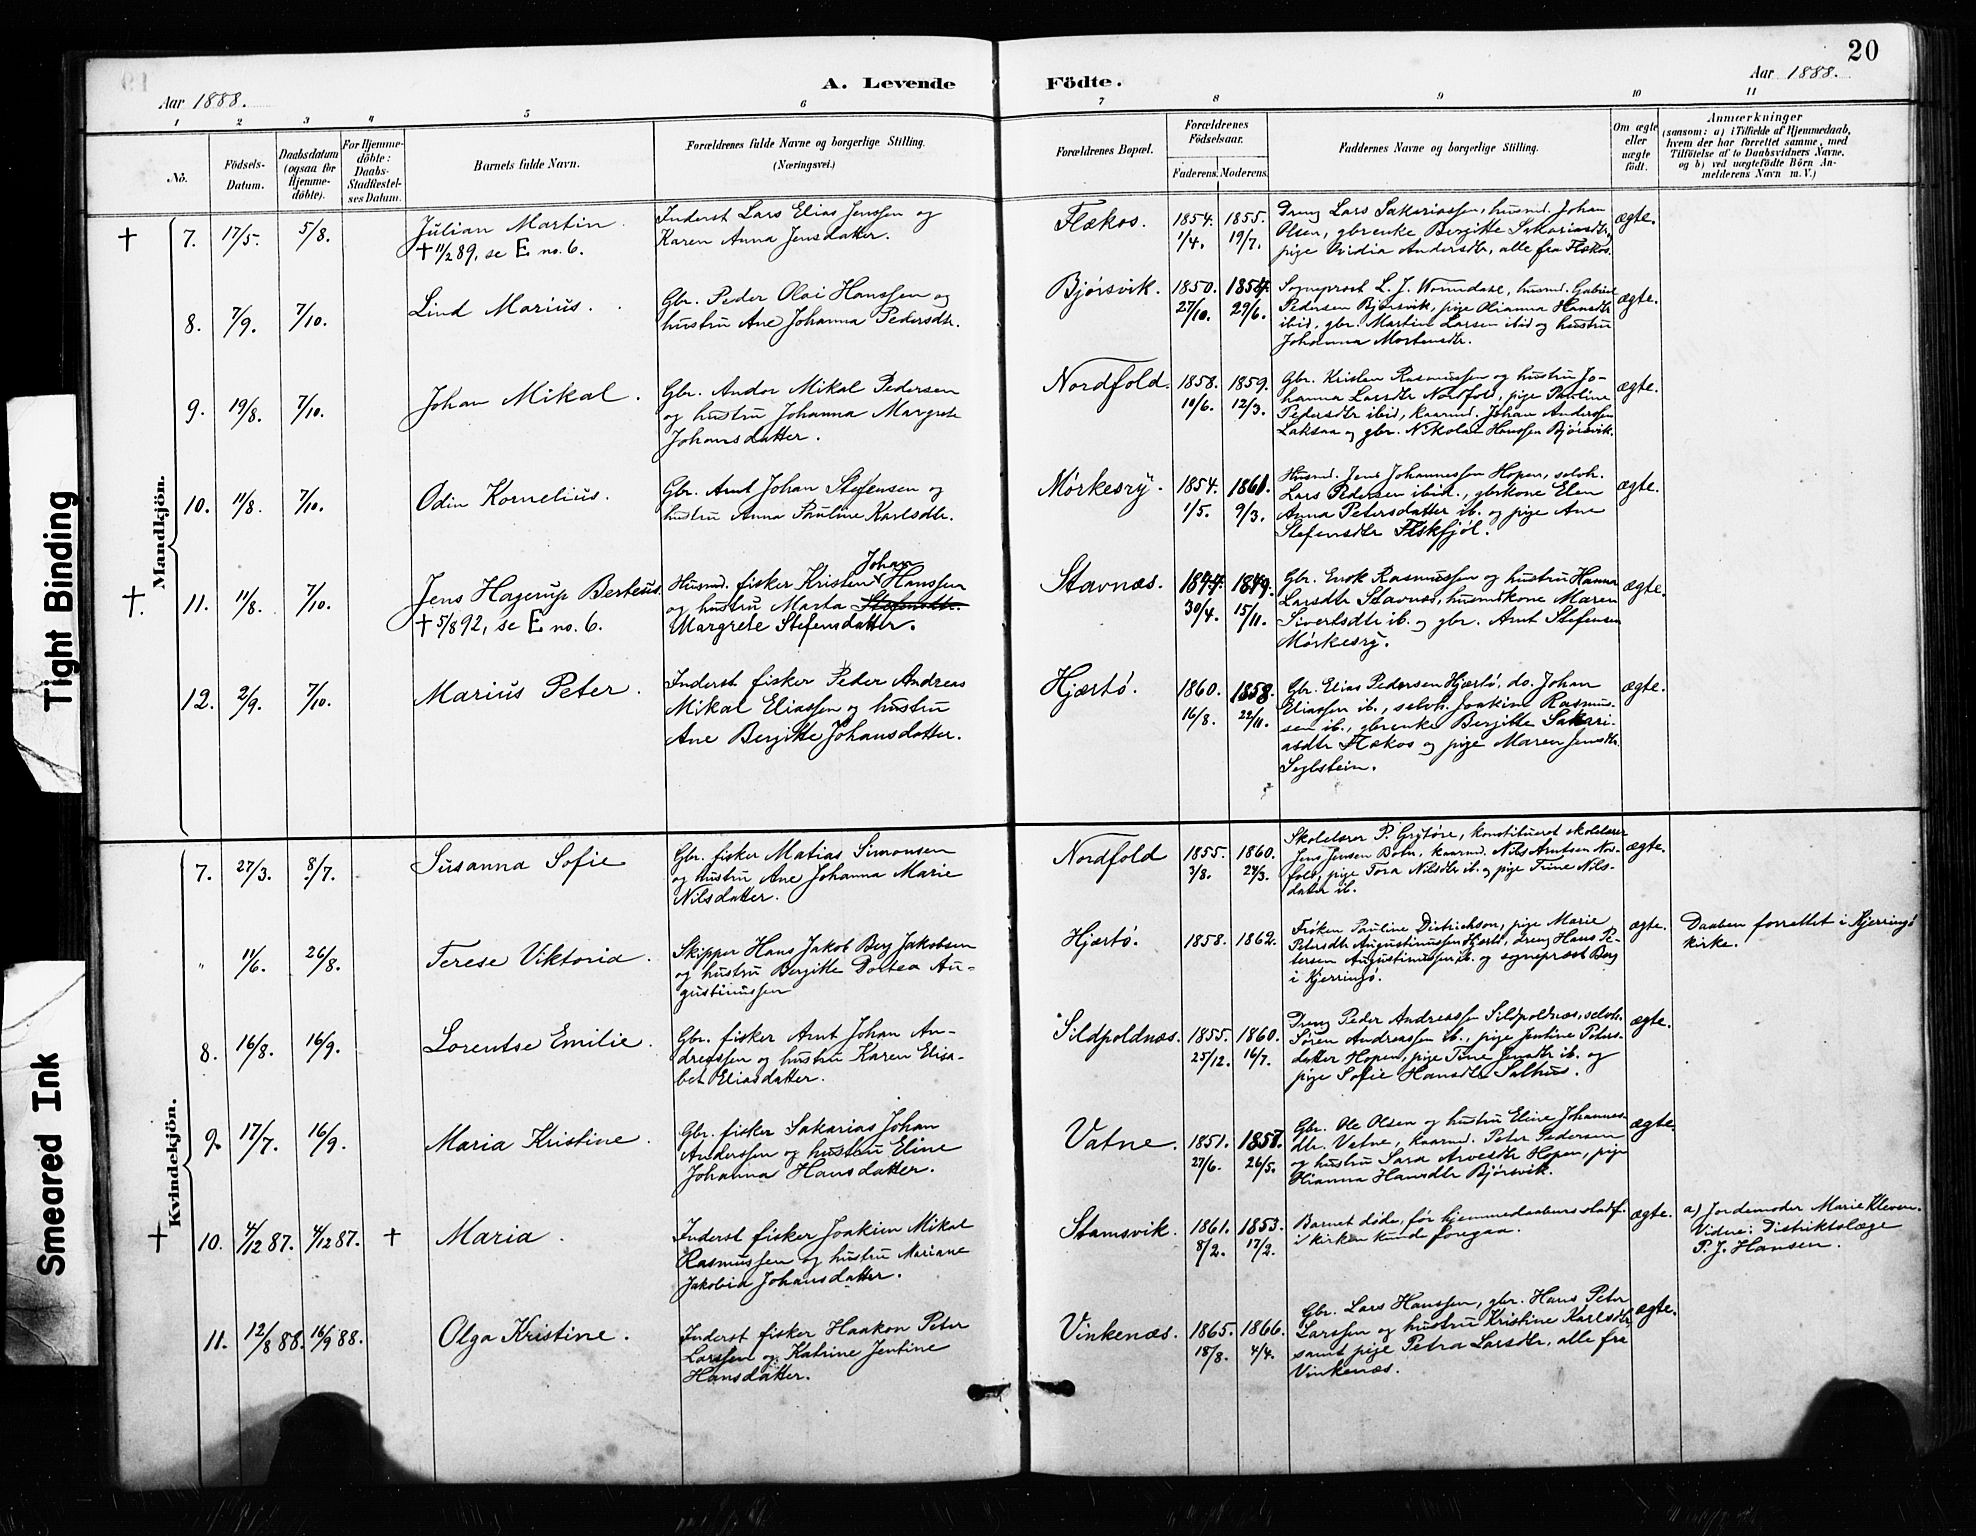 20
A. Levende Födte.
Aar 1888.
Aar 1888.
1 2 3 4 5 6 7 8 9 10 11
No.
Födsels-
Datum.
Daabsdatum
(ogsaa for
Hjemme-
döbte).
For Hjemme-
döbte:
Daabs-
Stadfæstel-
ses Datum.
Barnets fulde Navn.
Forældrenes fulde Navne og borgerlige Stilling.
(Næringsvei.)
Forældrenes Bopæl.
Forældrenes
Födselsaar.
Faderens. Moderens.
Faddernes Navne og borgerlige Stilling.
Om ægte
eller
uægte
födt.
Anmærkninger
(saasom: a) i Tilfælde af Hjemmedaab,
hvem der har forrettet samme, med
Tilföielse af to Daabsvidners Navne,
og b) ved uægtefödte Börn An-
melderens Navn m.V.)
Mandkjön.
† 7. 17/5. 5/8.
Julian Martin.
† 11/2 89, se E no. 6.
Inderst Lars Elias Jenssen og
Karen Anna Jensdatter.
Flækos. 1854. 1/4. 1855. 19/7.
Dreng Lars Sakariassen, husmd. Johan
Olsen, gbrenke Bergitte Sakariasdtr,
pige Ovidia Andersdtr, alle fra Flækos.
ægte.
8. 7/9. 7/10.
Lind Marius.
Gbr. Peder Olai Hanssen og
hustru Ane Johanna Pedersdtr.
Bjørsvik. 1850. 27/10. 1854. 29/6.
Sogneprest L. J. Wormdahl, husmd. Gabriel
Pedersen Bjørsvik, pige Olianna Hansdtr
ibid, gbr. Martin Larsen ibid og hustru
Johanna Mortensdtr.
ægte.
9. 19/8. 7/10.
Johan Mikal.
Gbr. Andor Mikal Pedersen
og hustru Johanna Margrete
Johansdatter.
Nordfold. 1858. 10/6. 1859. 12/3.
Gbr. Kristen Rasmussen og hustru Jo-
hanna Larsdtr Nordfold, pige Pauline
Pedersdtr ibid, kaarmd. Johan Anderssen
Laksaa og gbr. Nikolai Hanssen Bjørsvik.
ægte.
10. 11/8. 7/10.
Odin Kornelius.
Gbr. Arnt Johan Stefensen og
hustru Anna Pauline Karlsdtr.
Mørkesry. 1854. 1/5. 1861. 9/3.
Husmd. Jens Johannessen Hopen, selvh.
Lars Pedersen ibid., gbrkone Elen
Anna Petersdatter ib. og pige Ane
Stefensdtr Flskfjøl.
ægte.
†. 11. 11/8. 7/10.
Jens Hagerup Berteus.
† 5/8 92, se E no. 6.
Johan
Husmd. fisker Kristen Hanssen
og hustru Marta
Margrete Stefensdatter.
Stavnæs. 1844. 30/4. 1849. 15/11.
Gbr. Enok Rasmussen og hustru Hanna
Larsdtr Stavnæs, husmdkone Maren
Sivertsdtr ib. og gbr. Arnt Stefensen
Mørkesry.
ægte.
12. 2/9. 7/10.
Marius Peter.
Inderst fisker Peder Andreas
Mikal Eliassen og hustru
Ane Bergitte Johansdatter.
Hjærtø. 1860. 16/8. 1858. 22/11.
Gbr. Elias Pedersen Hjærtø, do. Johan
Eliassen ib., selvh. Joakim Rasmus-
sen ib., gbrenke Bergitte Sakari-
asdtr Flækos og pige Maren Jensdtr
Seglstein.
ægte.
Kvindekjön.
7. 27/3. 8/7.
Susanna Sofie
Gbr. fisker Matias Simonsen
og hustru Ane Johanna Marie
Nilsdatter.
Nordfold 1855. 3/8. 1860. 24/3.
Skolelærer P. Grytøre, konstitueret skolelærer
Jens Jensen Botn, kaarmd. Nils Arntsen Nor-
fold, pige Tora Nilsdtr ib. og pige Trine Nils-
datter ib.
ægte.
" 11/6. 26/8.
Terese Viktoria.
Skipper Hans Jakob Berg Jakobsen
og hustru Bergitte Dortea Au-
gustinussen
Hjærtø. 1858. 1862.
Frøken Pauline Ditrichson, pige Marie
Petersdtr Augustinussen Hjærtø, dreng Hans Pe-
tersen Augustinussen ib. og sogneprest Berg
i Kjerringø.
ægte.
Daaben forrettet i Kjerringø
kirke.
8. 16/8. 16/9.
Lorentse Emilie.
Gbr. fisker Arnt Johan An-
dreassen og hustru Karen Elisa-
bet Eliasdatter.
Sildpoldnæs. 1855. 25/12. 1860. 16/7.
Dreng Peder Andreassen Sildpoldnæs, selvh.
Søren Andreassen ib., pige Jentine Peters-
datter Hopen, pige Trine Jensdtr ib. og
pige Sofie Hansdtr Salhus.
ægte.
9. 17/7. 16/9.
Maria Kristine.
Gbr. fisker Sakarias Johan
Anderssen og hustru Eline
Johanna Hansdatter.
Vatne. 1851. 27/6. 1857. 26/5.
Gbr. Ole Olsen og hustru Eline Johannes-
dtr. Vatne, kaarmd. Peter Pedersen
og hustru Sara Arvesdtr Hopen, pige
Olianna Hansdtr Bjørsvik.
ægte.
† 10. 4/12 87. 4/12 87. †
Maria.
Inderst fisker Joakim Mikal
Rasmussen og hustru Mariane
Jakobia Johansdatter.
Stamsvik. 1861. 8/2. 1853. 17/2.
Barnet døde, før hjemmedaabens stadf.
i kirken kunde foregaa.
ægte.
a) Jordemoder Marie Kleven.
Vidne: Distriktslæge
P. J. Hansen.
11. 12/8 88. 16/9 88.
Olga Kristine.
Inderst fisker Haakon Peter
Larssen og Katrine Jentine
Hansdatter.
Vinkenæs. 1865. 18/8. 1866. 4/4.
Gbr. Lars Hanssen, gbr. Hans Peter
Larssen og hustru Kristine Karlsdtr,
samt pige Petra Larsdtr, alle fra
Vinkenæs.
ægte.
Tight Binding
Smeared Ink